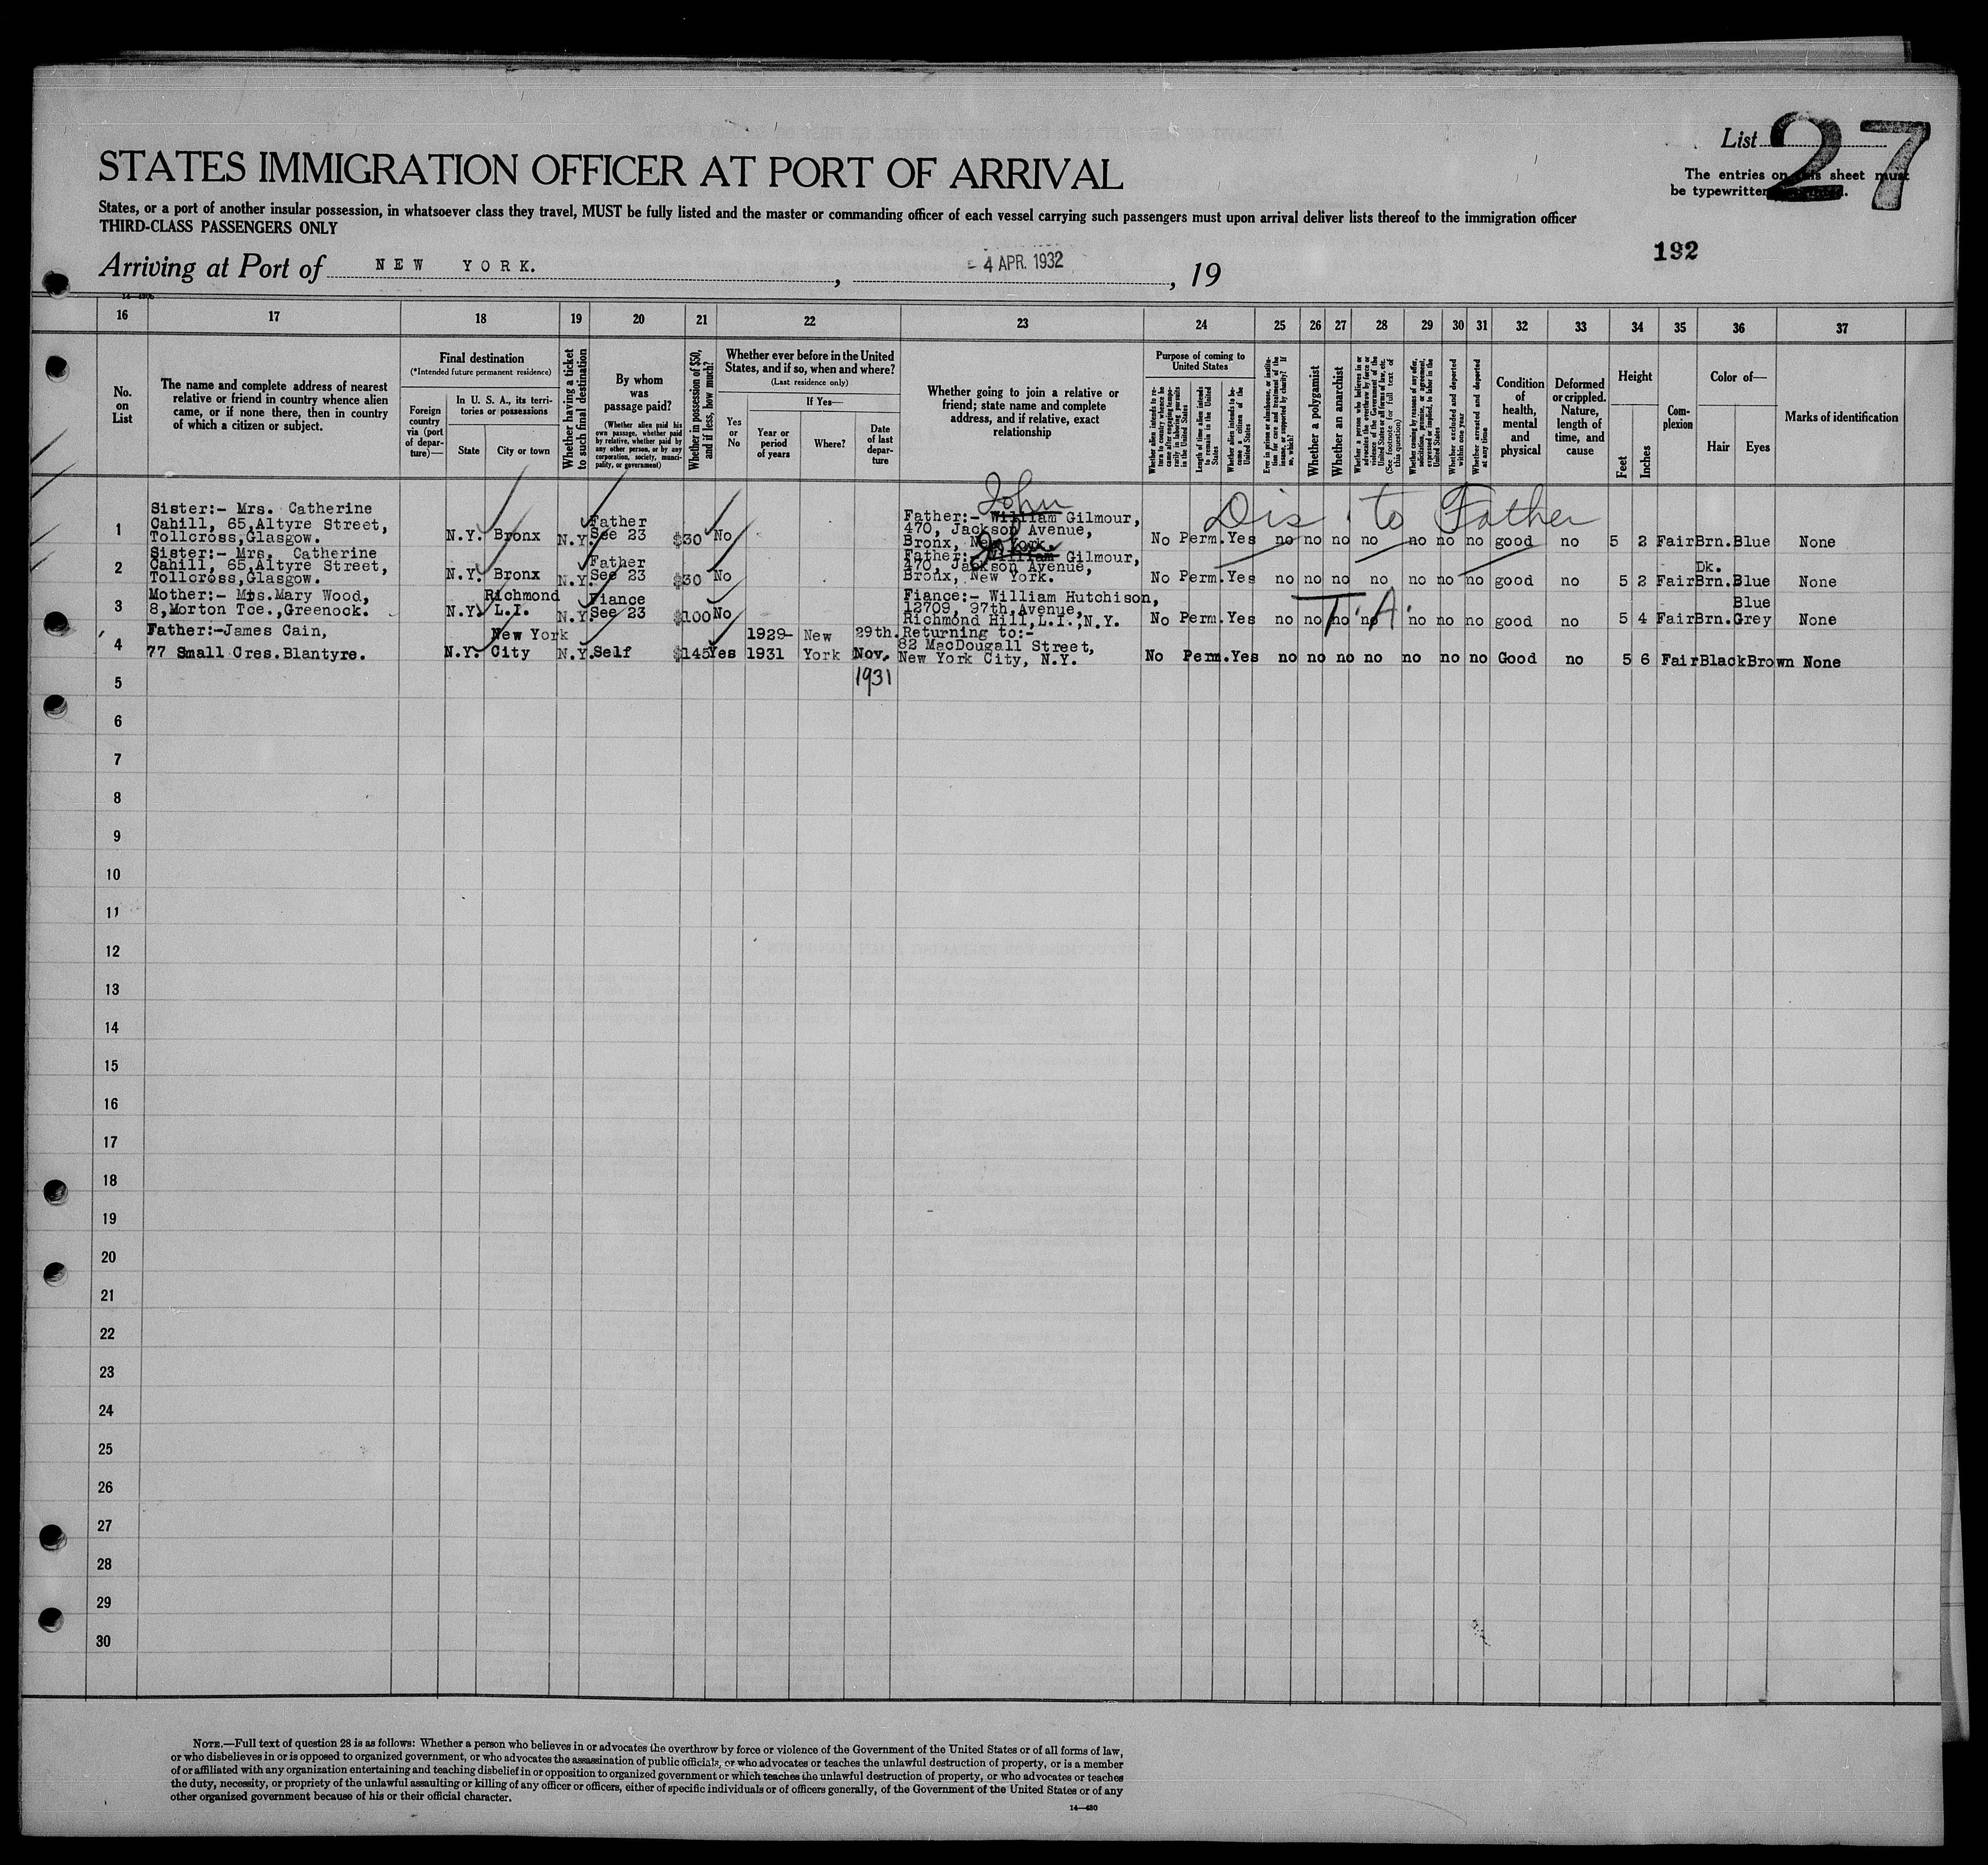 List 27
STATES IMMIGRATION OFFICER AT PORT OF ARRIVAL
The entries on this sheet must
be typewritten
States, or a port of another insular possession, in whatsoever class they travel, MUST be fully listed and the master or commanding officer of each vessel carrying such passengers must upon arrival deliver lists thereof to the immigration officer
THIRD-CLASS PASSENGERS ONLY
192
Arriving at Port of NEW YORK. , - 4 APR. 1932 , 19
16 17 18 19 20 21 22 23 24 25 26 27 28 29 30 31 32 33 34 35 36 37
No. on List
The name and complete address of nearest
relative or friend in country whence alien
came, or if none there, then in country
of which a citizen or subject.
Final destination
(*Intended future permanent residence)
Foreign country via (port of departure)—
In U. S. A., its territories or possessions
State
City or town
Whether having a ticket to such final destination
By whom was passage paid?
(Whether alien paid his own passage, whether paid by relative, whether paid by any other person, or by any corporation, society, municipality, or government)
Whether in possession of $50, and if less, how much?
Whether ever before in the United States, and if so, when and where?
(Last residence only)
Yes or No
If Yes—
Year or period of years
Where?
Date of last departure
Whether going to join a relative or
friend; state name and complete
address, and if relative, exact
relationship
Purpose of coming to United States
Whether alien intends to return to country whence he came after engaging temporarily in laboring pursuits in the United States
Length of time alien intends to remain in the United States
Whether alien intends to become a citizen of the United States
Ever in prison or almshouse, or institution for care and treatment of the insane, or supported by charity? If so, which?
Whether a polygamist
Whether an anarchist
Whether a person who believes in or advocates the overthrow by force or violence of the Government of the United States or all forms of law, etc. (See footnote for full text of this question)
Whether coming by reasons of any offer, solicitation, promise, or agreement, expressed or implied, to labor in the United States
Whether excluded and deported within one year
Whether arrested and deported at any time
Condition of health, mental and physical
Deformed or crippled. Nature, length of time, and cause
Height
Feet
Inches
Complexion
Color of—
Hair
Eyes
Marks of identification
John
Dis. to Father
1 Sister:- Mrs. Catherine
Cahill, 65,Altyre Street,
Tollcross,Glasgow.
N.Y. Bronx N.Y. Father See 23 $30 No
Father:- William Gilmour,
470, Jackson Avenue,
Bronx, New York.
No Perm. Yes no no no no no no no good no 5 2 Fair Brn. Blue None
John
2 Sister:- Mrs. Catherine
Cahill, 65,Altyre Street,
Tollcross,Glasgow.
N.Y. Bronx N.Y. Father See 23 $30 No
Father:- William Gilmour,
470, Jackson Avenue,
Bronx, New York.
No Perm. Yes no no no no no no no good no 5 2 Fair Dk. Brn. Blue None
3 Mother:- Mrs.Mary Wood,
8,Morton Tce.,Greenock.
N.Y. Richmond L.I. N.Y. Fiance See 23 $100 No
Fiance:- William Hutchison,
12709, 97th,Avenue,
Richmond Hill,L.I.,N.Y.
T. A.
No Perm. Yes no no no no no no no good no 5 4 Fair Brn. Blue Grey None
4 Father:-James Cain,
77 Small Cres.Blantyre.
N.Y. New York City N.Y. Self $145 Yes 1929- 1931 New York 29th. Nov. 1931
Returning to:-
82 MacDougall Street,
New York City, N.Y.
No Perm. Yes no no no no no no no Good no 5 6 Fair Black Brown None
5
6
7
8
9
10
11
12
13
14
15
16
17
18
19
20
21
22
23
24
25
26
27
28
29
30
NOTE.—Full text of question 28 is as follows: Whether a person who believes in or advocates the overthrow by force or violence of the Government of the United States or of all forms of law,
or who disbelieves in or is opposed to organized government, or who advocates the assassination of public officials, or who advocates or teaches the unlawful destruction of property, or is a member
of or affiliated with any organization entertaining and teaching disbelief in or opposition to organized government or which teaches the unlawful destruction of property, or who advocates or teaches
the duty, necessity, or propriety of the unlawful assaulting or killing of any officer or officers, either of specific individuals or of officers generally, of the Government of the United States or of any
other organized government because of his or their official character.
14—480